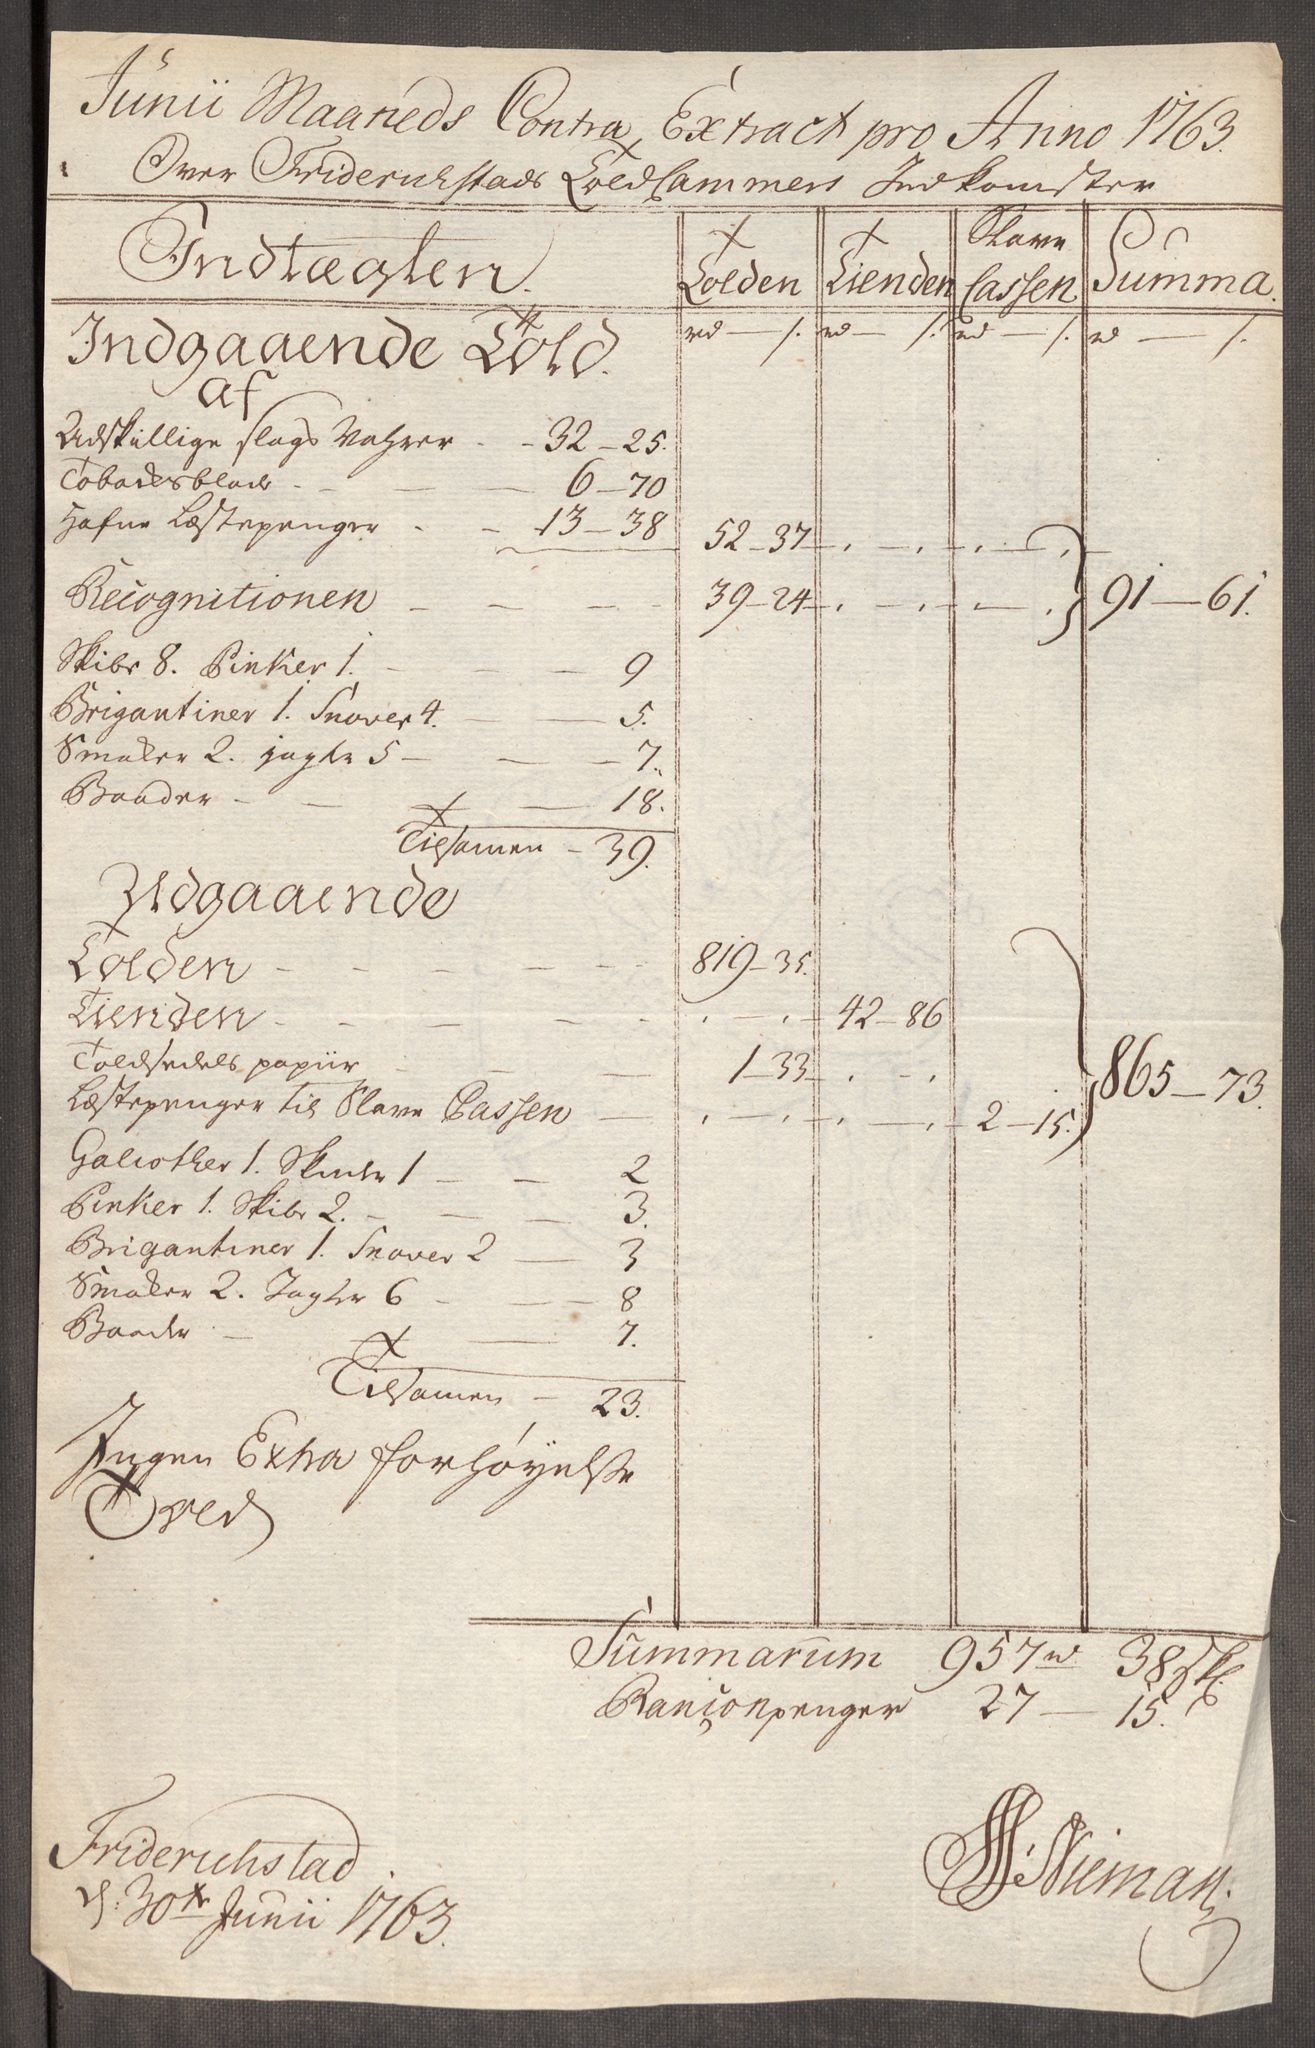 Junii Maaneds Contra Extract pro Anno 1763.
Over Friderichstads Told Cammers Indkomster
Indtægten. Tolden Tienden Slave Cassen Summa.
Indgaaende Told. rd — s. rd — s. rd — s. rd — s.
af
Udskillige slags Vahrer - - 32 - 25.
Tobaksblade - - - 6 - 70
Hafne Læstepenger - - 13 - 38 52 - 37
Recognitionen - - - - 39 - 24 91 - 61.
Skibe 8. Pinker 1. - - - 9
Brigantiner 1. Snover 4. - - 5.
Smaker 2. jagter 5 - - - 7.
Baader - - - 18.
Tilsamen - 39.
Udgaaende
Tolden - - - - - - 819 - 35.
Tienden - - - - - - 42 - 86
Toldsedels papiir - - - 1 - 33 865 - 73.
Læstepenger til Slave Cassen - 2 - 15.
Galiother 1. Skuder 1 - - 2
Pinker 1. Skibe 2. - - - 3.
Brigantiner 1. Snover 2 - 3
Smaker 2. Jagter 6 - - - 8
Baader - - 7.
Tilsamen - 23.
Ingen Extra forhøyelse
Tved
Summarum 957 rd 38 sk.
Rançonpenger 27 — 15.
Friderichstad
d: 30te Junii 1763.
Nieman